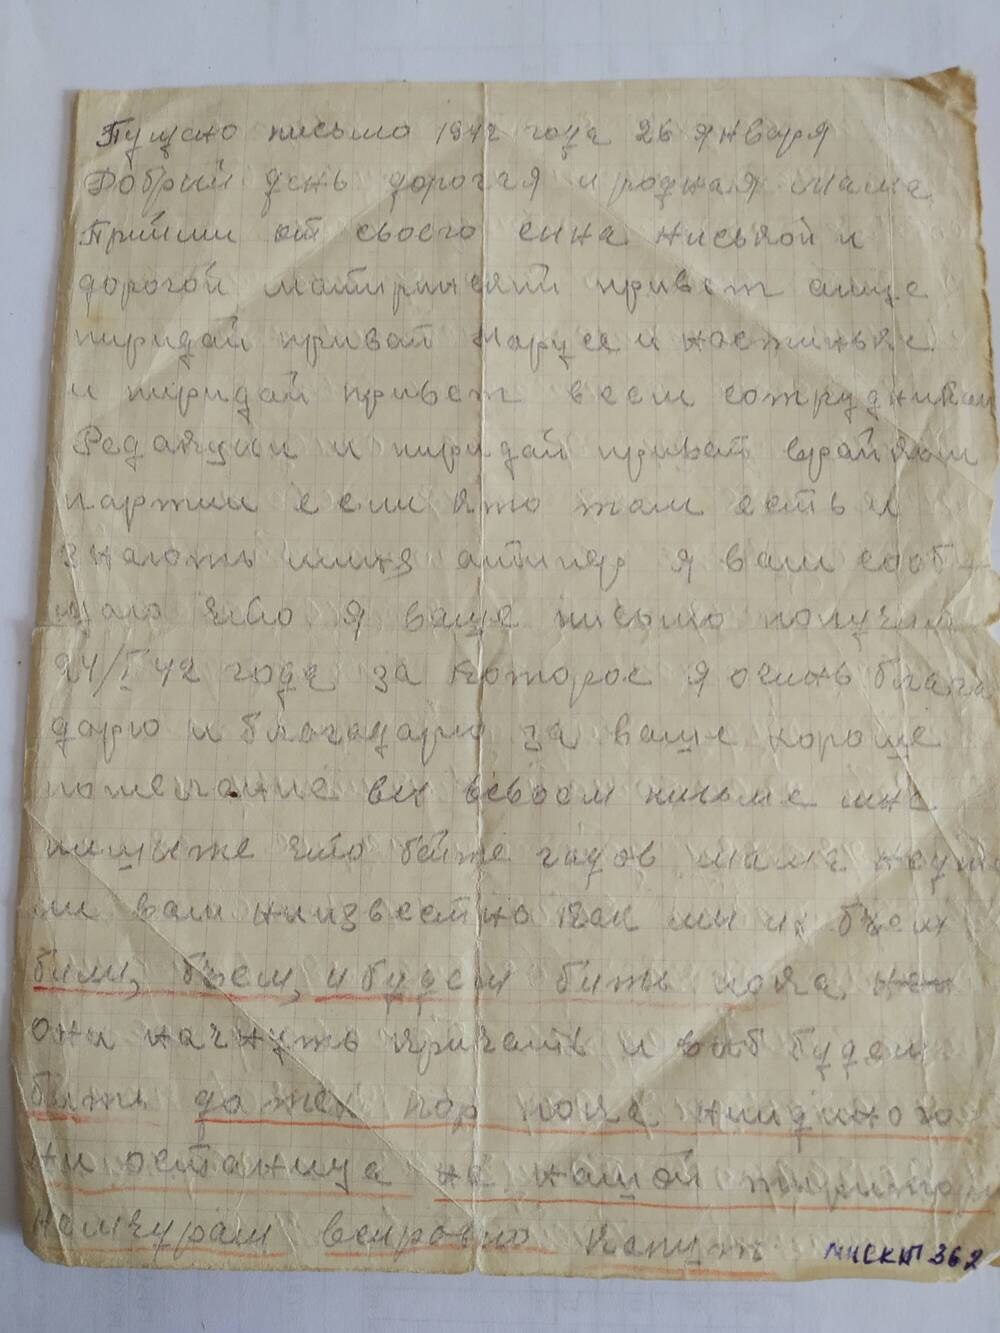 Пущено письмо 1942 года 26 января
Добрий день дорогая и родная мама
Прийми от своего сина ниськой и
дорогой матиринский привет аище
пиридай привет Маруся и костинька
и пиридай привет всем сотрудникам
Редакции и пиридай привет врайком
партии если кто там есть и
знають миня атипер я вам сооб-
щаю что я ваше письмо получил
24/I 42 года за которое я очинь блага
дарю и благодарю за ваше хороше
пожелание вы всвоем письме мне
пишыже что бейте гадов мама
ли вам ниизвестно как ми их бъем
били, бъем, и будем бить пока
они начнуть кричать и будем
бить до тех пор пока ниидиного
ни останица на нашой
немчурам всировно Капут
МИСКТ 362